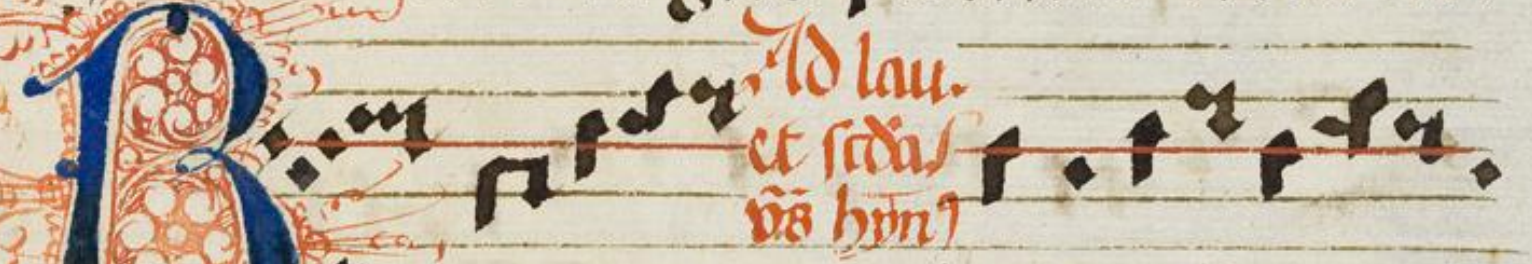 R
Ad lau.
et scd'as
v̄s hȳn9